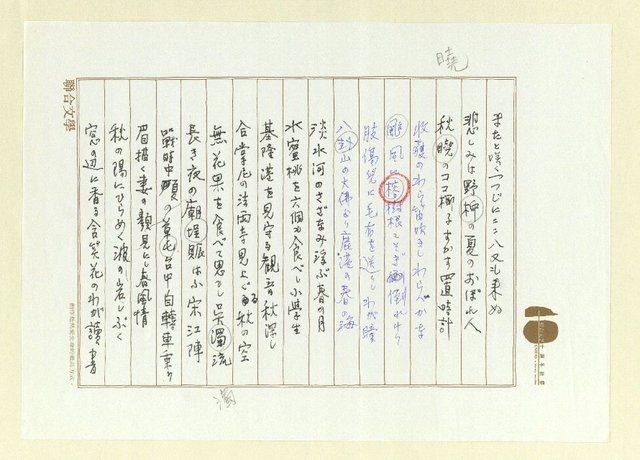 曉
またと咲くつつじに二二八又も来ぬ
悲しみは野柳の夏のおぼれ人
秋曉のココ椰子すかす置時計
收穫のわら笛吹きしわらべかな
颱風に榕樹根こそぎ倒れけり
肢傷兒に毛布を送るわが
八卦山の大佛より鹿港の春の海
淡水河のさざなみ浮ぶ暮の月
水蜜桃を六個も食べし小学生
基隆港を見守る觀音秋深し
合掌尼の法雨寺見上ぐる秋の空
無花果を食べて思ひし宗濁流
長き夜の廟埕賑はふ宋江陣
戰時中頭の草屯台中自轉車乘り
眉描く妻の顏見にし春風情
秋の陽にひらめく波の岩しぶく
窓の辺に香る含笑花のわが讀書
濁
聯合文學